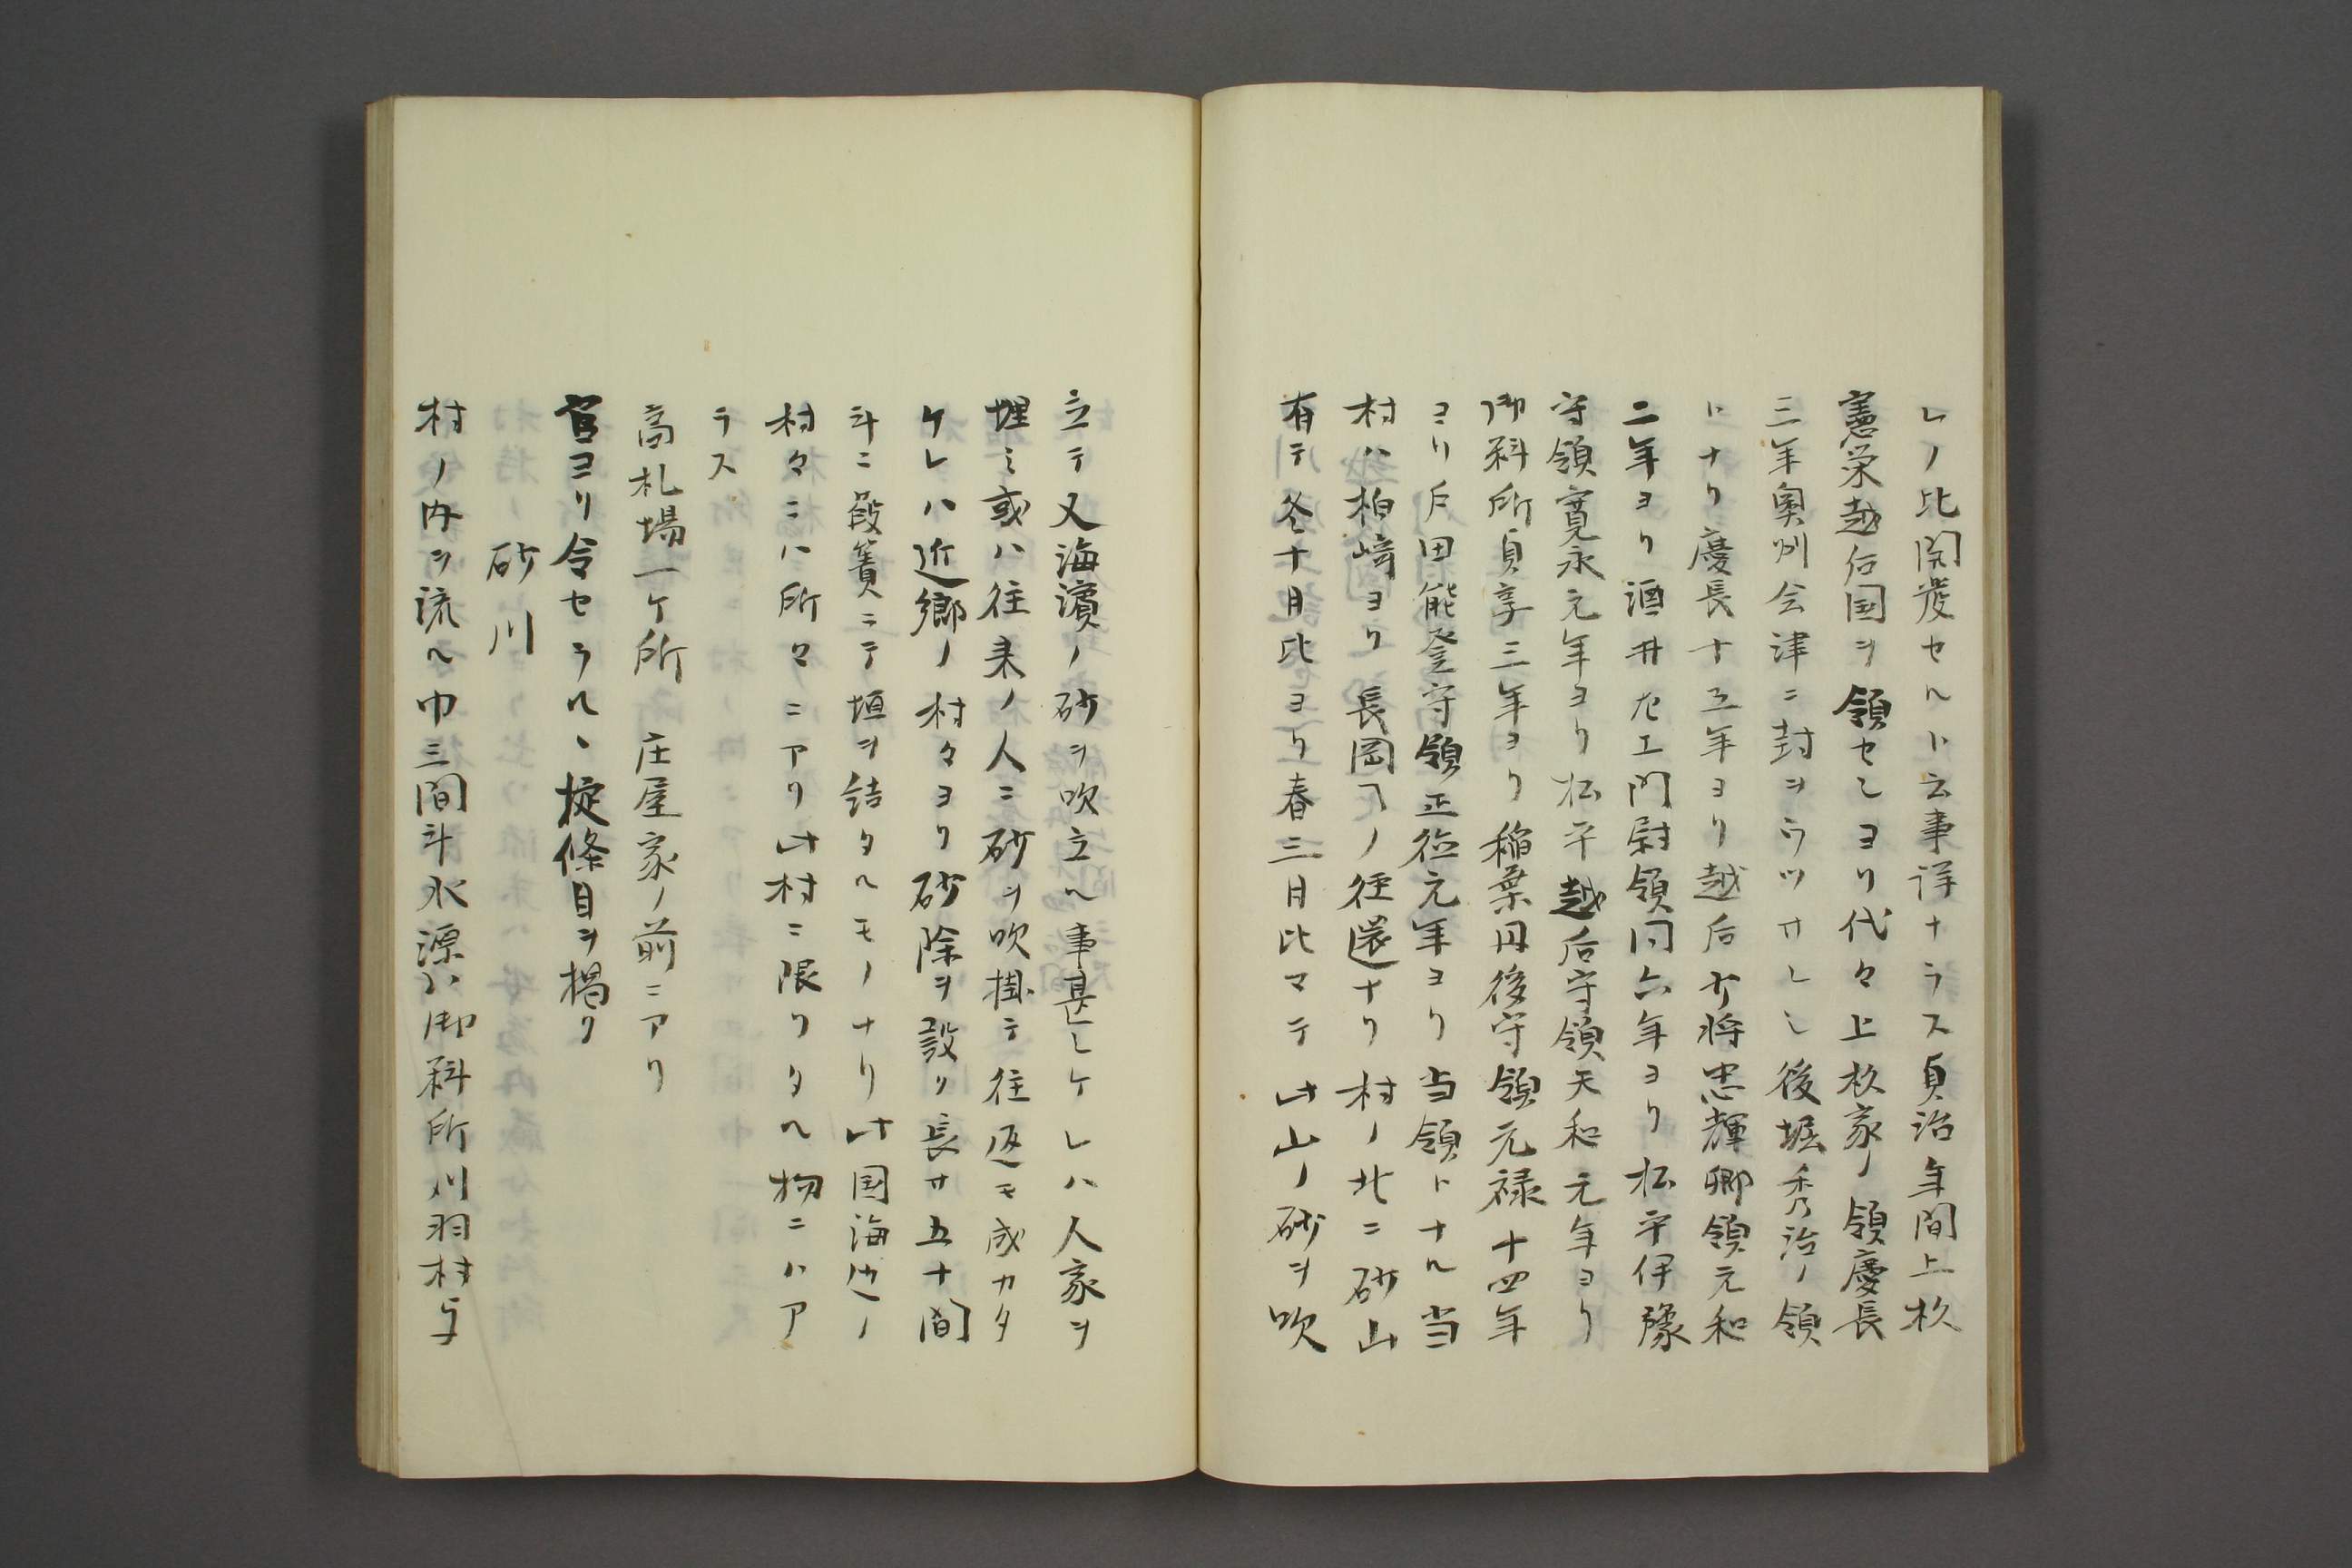 レノ比開發セルト云事詳ナラス貞治年間上杉
憲栄越后国ヲ領セシヨリ代々上杉家ノ領慶長
三年奥州会津ニ封ヲウツサレシ後堀秀治ノ領
トナリ慶長十五年ヨリ越后少将忠輝卿領元和
二年ヨリ酒井左エ門尉領同六年ヨリ松平伊豫
守領寛永元年ヨリ松平越后守領天和元年ヨリ
御料所貞享三年ヨリ稲葉丹後守領元禄十四年
ヨリ戸田能登守領正徳元年ヨリ当領トナル当
村ハ柏崎ヨリ長岡ヘノ往還ナリ村ノ北ニ砂山
有テ冬十月比ヨリ春三月比マテ此山ノ砂ヲ吹
立テ又海濱ノ砂ヲ吹立ル事甚シケレハ人家ヲ
埋ミ或ハ往来ノ人ニ砂ヲ吹掛テ往返モ成カタ
ケレハ近郷ノ村々ヨリ砂除ヲ設ク長サ五十間
斗ニ葭簀ニテ垣ヲ結タルモノナリ此国海辺ノ
村々ニハ所々ニアリ此村ニ限リタル物ニハア
ラス
高札場一ケ所 庄屋家ノ前ニアリ
官ヨリ令セラルヽ掟條目ヲ掲ク
砂川
村ノ内ヲ流ル巾三間斗水源ハ御料所川羽村与